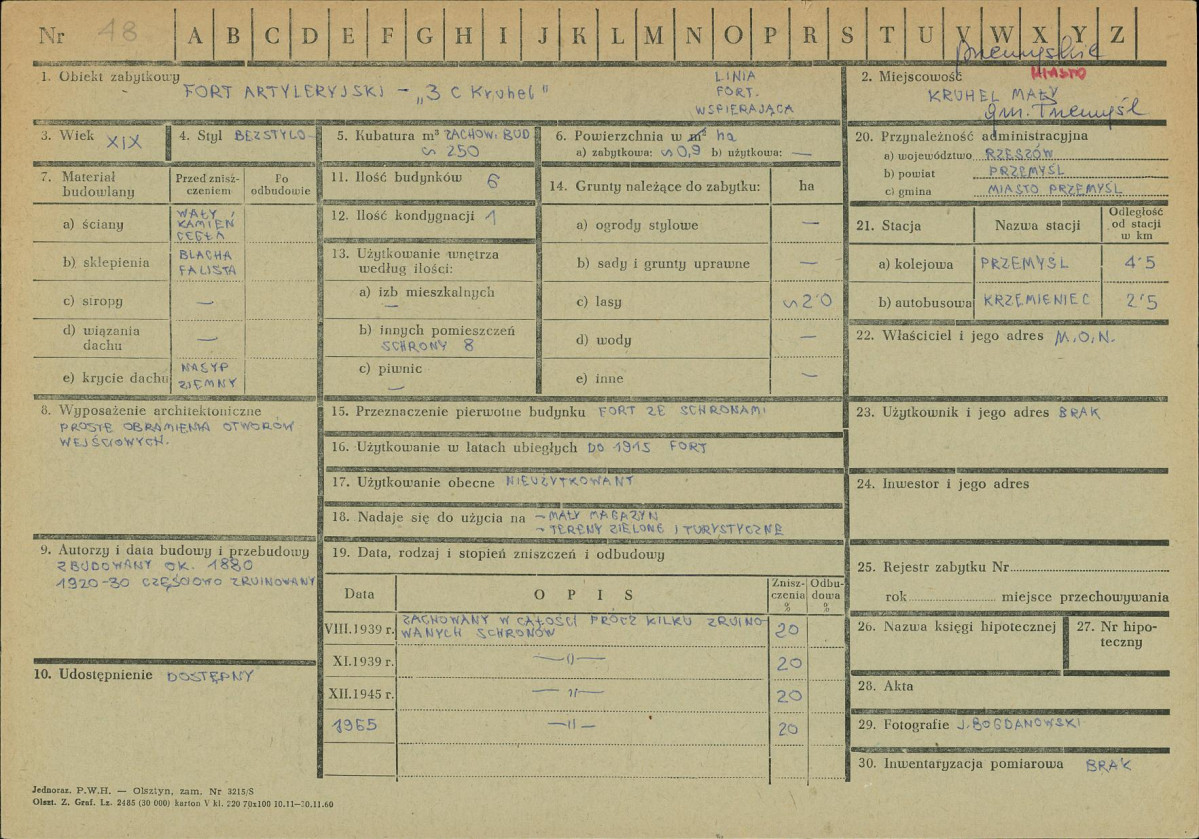 Nr 48 A B C D E F G H I J K L M N O P R S T U V W X Y Z
przemyskie
1. Obiekt zabytkowy
FORT ARTYLERYJSKI – „3 C Kruhel"
LINIA
FORT.
WSPIERAJĄCA
2. Miejscowość
MIASTO
KRUHEL MAŁY
gm. Przemyśl
3. Wiek XIX
4. Styl BEZSTYLO-
5. Kubatura m³ ZACHOW. BUD
∽ 250
6. Powierzchnia w m² ha
a) zabytkowa: ∽0,9 b) użytkowa: —
7. Materiał budowlany
Przed zniszczeniem
Po odbudowie
a) ściany WAŁY, KAMIEŃ CEGŁA
b) sklepienia BLACHA FALISTA
c) stropy —
d) wiązania dachu —
e) krycie dachu NASYP ZIEMNY
8. Wyposażenie architektoniczne
PROSTE OBRAMIENIA OTWORÓW
WEJŚCIOWYCH.
9. Autorzy i data budowy i przebudowy
ZBUDOWANY OK. 1880
1920-30 CZĘŚCIOWO ZRUINOWANY
10. Udostępnienie DOSTĘPNY
11. Ilość budynków 6
12. Ilość kondygnacji 1
13. Użytkowanie wnętrza
według ilości:
a) izb mieszkalnych
—
b) innych pomieszczeń
SCHRONY 8
c) piwnic
—
14. Grunty należące do zabytku: ha
a) ogrody stylowe —
b) sady i grunty uprawne —
c) lasy ∽2'0
d) wody —
e) inne —
15. Przeznaczenie pierwotne budynku FORT ZE SCHRONAMI
16. Użytkowanie w latach ubiegłych DO 1915 FORT
17. Użytkowanie obecne NIEUŻYTKOWANY
18. Nadaje się do użycia na – MAŁY MAGAZYN
– TERENY ZIELONE I TURYSTYCZNE
19. Data, rodzaj i stopień zniszczeń i odbudowy
Data
O P I S
Zniszczenia %
Odbudowa %
VIII.1939 r. ZACHOWANY W CAŁOŚCI PRÓCZ KILKU ZRUINO-
WANYCH SCHRONÓW 20
XI.1939 r. —()— 20
XII.1945 r. — 11 — 20
1965 —11— 20
20. Przynależność administracyjna
a) województwo RZESZÓW
b) powiat PRZEMYŚL
c) gmina MIASTO PRZEMYŚL
21. Stacja
Nazwa stacji
Odległość od stacji w km
a) kolejowa PRZEMYŚL 4'5
b) autobusowa KRZEMIENIEC 2'5
22. Właściciel i jego adres M.O.N.
23. Użytkownik i jego adres BRAK
24. Inwestor i jego adres
25. Rejestr zabytku Nr
rok miejsce przechowywania
26. Nazwa księgi hipotecznej
27. Nr hipo-
teczny
28. Akta
29. Fotografie J. BOGDANOWSKI
30. Inwentaryzacja pomiarowa BRAK
Jednoraz. P.W.H. — Olsztyn, zam. Nr 3215/S
Olszt. Z. Graf. Lz. 2485 (30 000) karton V kl. 220 70x100 10.11—30.11.60